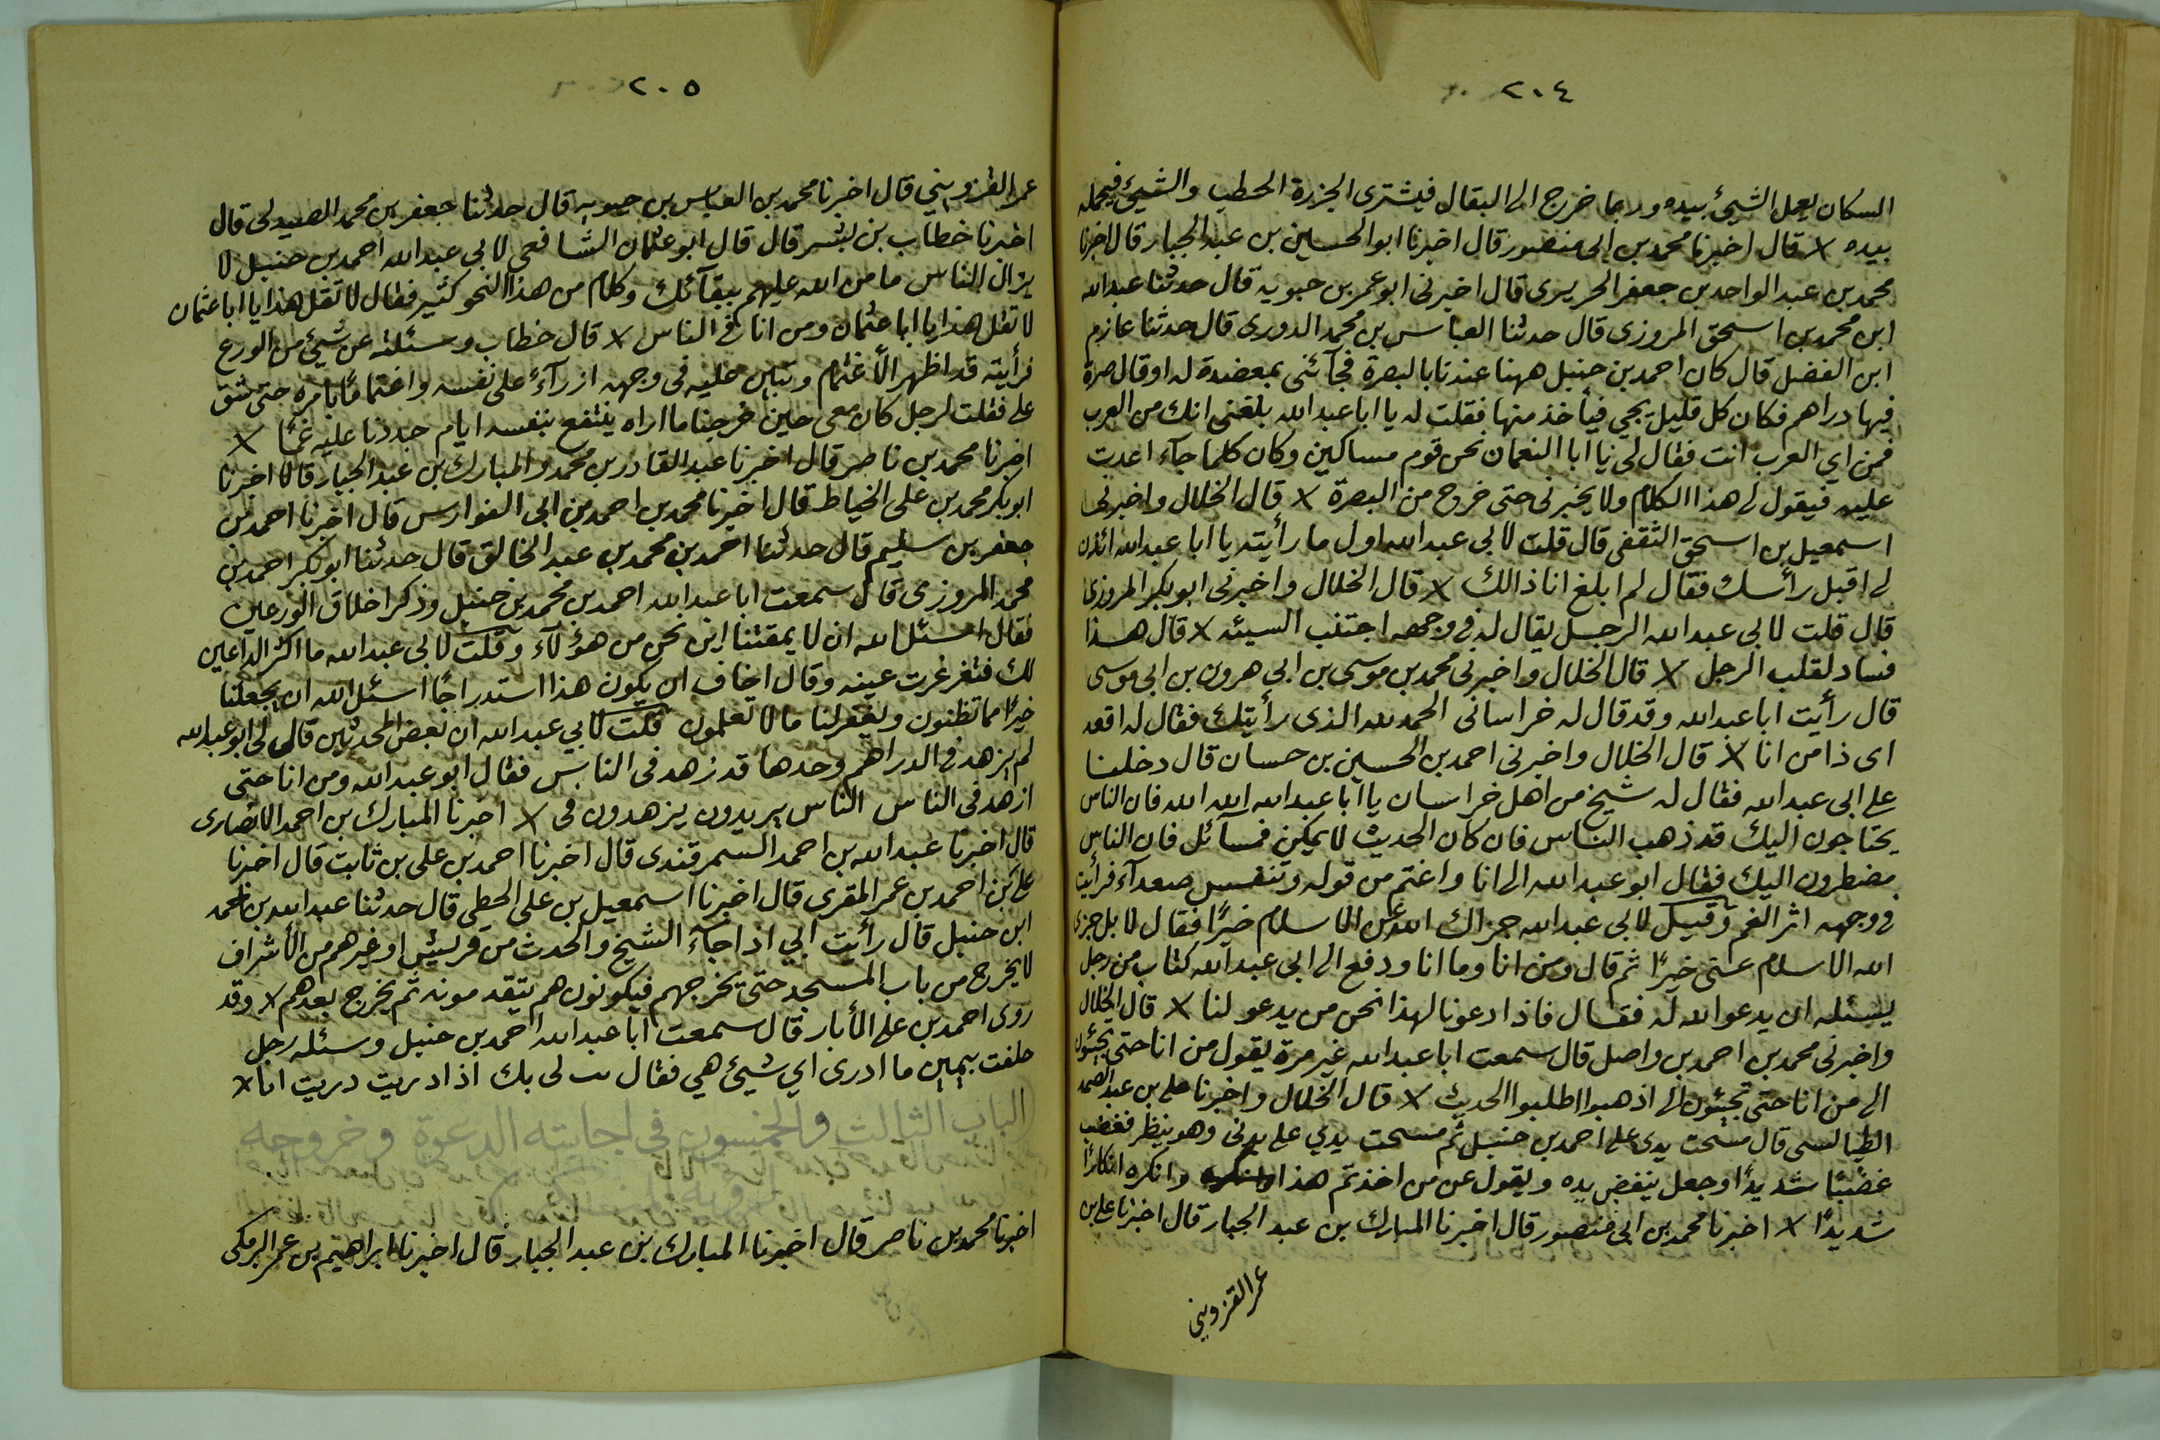 ٢٠٤
السكان يعمل الشيئ بيده وربما خرج الى البقال فيشترى الجزرة الحطب والشيئ فيحمله
بيده × قال اخبرنا محمد بن ابى منصور قال اخبرنا ابو الحسين بن عبد الجبار قال اخبرنا
محمد بن عبد الواحد بن جعفر الحريرى قال اخبرنى ابو عمر بن حيويه قال حدثنا عبد الله
ابن محمد بن اسحق المروزى قال حدثنا العباس بن محمد الدورى قال حدثنا عازم
ابن الفضل قال كان احمد بن حنبل ههنا عندنا بالبصرة فجآئنى بمعضدة له او قال صرة
فيها دراهم فكان كل قليل يجي فيأخذ منها فقلت له يا ابا عبد الله بلغنى انك من العرب
فمن اي العرب انت فقال لى يا ابا النعمان نحن قوم مساكين وكان كلما جآء اعدت
عليه فيقول لى هذا الكلام ولا يخبرنى حتى خرج من البصرة × قال الخلال واخبرنى
اسمعيل بن اسحق الثقفى قال قلت لابى عبد الله اول ما رأيته يا ابا عبد الله ائذن
لى اقبل رأسك فقال لم ابلغ انا ذالك × قال الخلال واخبرنى ابو بكر المروزى
قال قلت لابى عبد الله الرجل يقال له فى وجهه اجتنب السيئه × قال هذا
فساد لقلب الرجل × قال الخلال واخبرنى محمد بن موسى بن ابى هرون بن ابى موسى
قال رأيت ابا عبد الله وقد قال له خراسانى الحمد لله الذى رأيتك فقال له اقعد
اى ذا من انا × قال الخلال واخبرنى احمد بن الحسين بن حسان قال دخلنا
على ابى عبد الله فقال له شيخ من اهل خراسان يا ابا عبد الله الله الله فان الناس
يحتاجون اليك قد ذهب الناس فان كان الحديث لا يمكين فمسآئل فان الناس
مضطرون اليك فقال ابو عبد الله الى انا واغتم من قوله وتنفس صعدآء فرأيت
فى وجهه اثر الغم وقيل لابى عبد الله جزاك الله عن الاسلام خيرًا فقال لا بل جزى
الله الاسلام عنى خيرًا ثم قال ومن انا وما انا ودفع الى ابى عبد الله كتاب من رجل
يسئله ان يدعو الله له فقال فاذا دعونا لهذا نحن من يدعو لنا × قال الخلال
واخبرنى محمد بن احمد بن واصل قال سمعت ابا عبد الله غير مرة يقول من انا حتى تجيئون
الى من انا حتى تجيئون الى اذهبوا اطلبوا الحديث × قال الخلال واخبرنا على بن عبد الصمد
الطيالسى قال مسحت يدى على احمد بن حنبل ثم مسحت يدي على بدنى وهو ينظر فغضب
غضبًا شديدًا وجعل ينفض يده ويقول عن من اخذتم هذا وانكره انكارًا
شديدًا × اخبرنا محمد بن ابى منصور قال اخبرنا المبارك بن عبد الجبار قال اخبرنا على بن
عمر القزوينى
٢٠٥
عمر القزوينى قال اخبرنا محمد بن العباس بن حيويه قال حدثنا جعفر بن محمد الصيدلى قال
اخبرنا خطاب بن بشر قال قال ابو عثمان الشافعى لابى عبد الله احمد بن حنبل لا
يزال الناس ما من الله عليهم ببقآئك وكلام من هذا النحو كثير فقال لا تقل هذا يا ابا عثمان
لا تقل هذا يا ابا عثمان ومن انا فى الناس × قال خطاب وسئلته عن شيئ من الورع
فرأيته قد اظهر الأغتمام وتبين عليه فى وجهه ازرآءً على نفسه واغتمامًا بامره حتى شق
على فقلت لرجل كان معى حين خرجنا ما اراه ينتفع بنفسه ايام جددنا عليه غمًا ×
اخبرنا محمد بن ناصر قال اخبرنا عبد القادر بن محمد والمبارك بن عبد الجبار قالا اخبرنا
ابو بكر محمد بن على الخياط قال اخبرنا محمد بن احمد بن ابى الفوارس قال اخبرنا احمد بن
جعفر بن سليم قال حدثنا احمد بن محمد بن عبد الخالق قال حدثنا ابو بكر احمد بن
محمد المروزى قال سمعت ابا عبد الله احمد بن محمد بن حنبل وذكر اخلاق الورعين
فقال اسئل الله ان لا يمقتنا اين نحن من هؤلآء وقلت لابى عبد الله ما اكثر الداعين
لك فتغرغرت عينه وقال اخاف ان يكون هذا استدراجًا اسئل الله ان يجعلنا
خيرًا مما تظنون ويغفر لنا ما لا تعلمون قلت لابي عبد الله ان بعض المحدثين قال لى ابو عبد الله
لم يزهد فى الدراهم وحدها قد زهد فى الناس فقال ابو عبد الله ومن انا حتى
ازهد فى الناس الناس يريدون يزهدون فى × اخبرنا المبارك بن احمد الانصارى
قال اخبرنا عبد الله بن احمد السمرقندى قال اخبرنا احمد بن على بن ثابت قال اخبرنا
على بن احمد بن عمر المقرى قال اخبرنا اسمعيل بن على الحطى قال حدثنا عبد الله بن احمد
ابن حنبل قال رأيت ابي اذا جآء الشيخ والحدث من قريش او غيرهم من الأشراف
لا يخرج من باب المسجد حتى يخرجهم فيكونون هم يتقدمونه ثم يخرج بعدهم × وقد
روى احمد بن على الأبار قال سمعت ابا عبد الله احمد بن حنبل وسئله رجل
حلفت بيمين ما ادرى اي شيئ هي فقال لى بك اذا دريت دريت انا ×
الباب الثالث والخمسون فى اجابته الدعوة وخروجه
اخبرنا محمد بن ناصر قال اخبرنا المبارك بن عبد الجبار قال اخبرنا ابراهيم بن عمر البرمكى